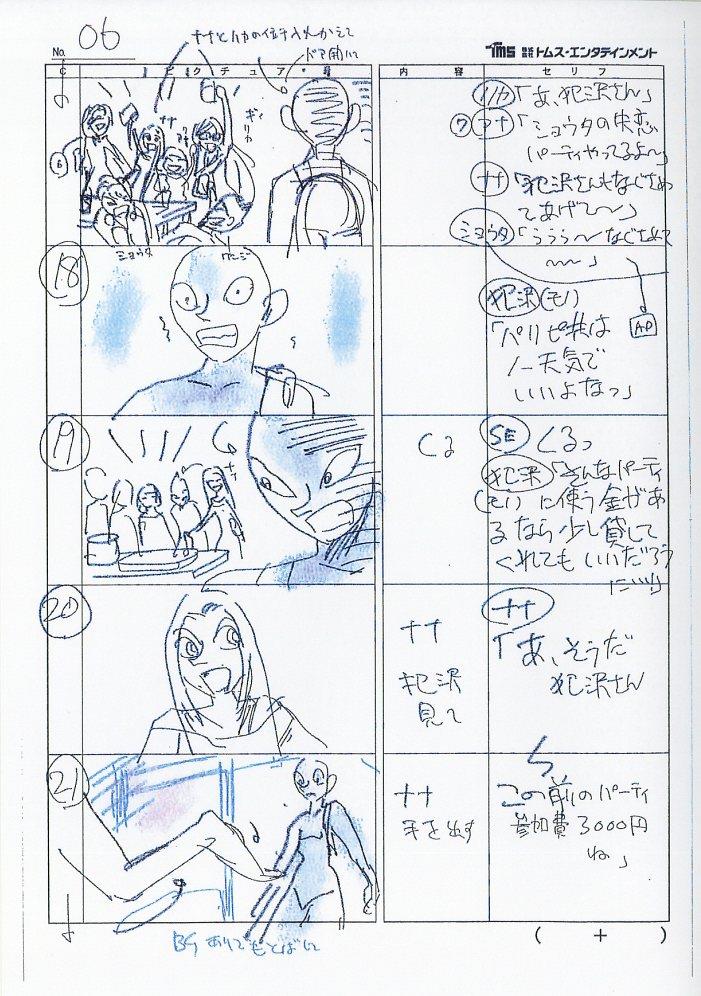 No. 06
ナナとリカの位置入れかえて
ドア前にて
TMS 株式会社 トムス・エンタテインメント
C ピクチュア・番 内容 セリフ
リカ「あ、犯沢さん」
ナナ「ショウタの失恋
パーティやってるよ〜」
ナナ「犯沢さんもなぐさめ
てあげて〜」
ショウタ「ううう〜なぐさめて
〜」
ナナ
リカ
ショウタ
ケンジ
18
犯沢(モノ)
AD
「パリピ共は
ノー天気で
いいよなっ」
19
ナナ
くる
SE くるっ
犯沢「そんなパーティ
(モノ)に使う金があ
るなら少し貸して
くれてもいいだろう
に…」
20
ナナ
犯沢
見て
ナナ
「あ、そうだ
犯沢さん
21
ナナ
手を出す
この前のパーティ
参加費3000円
ね」
BG ありでもとばして
( + )